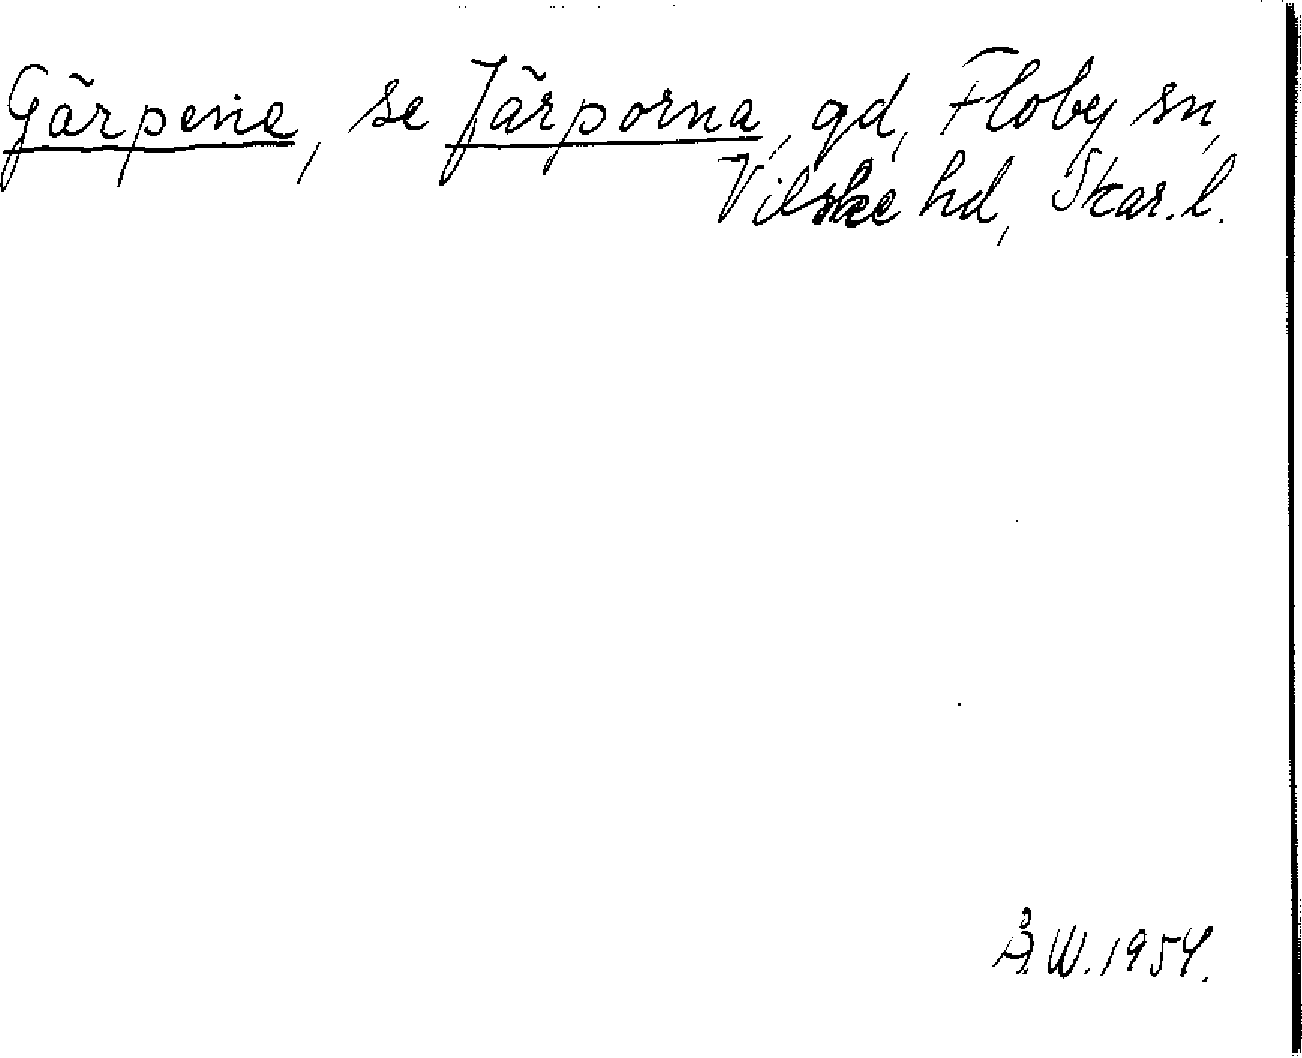 Gärpene, se Järporna, gd, Floby sn,
Vilske hd, Skar. l.
Å.W. 1954.